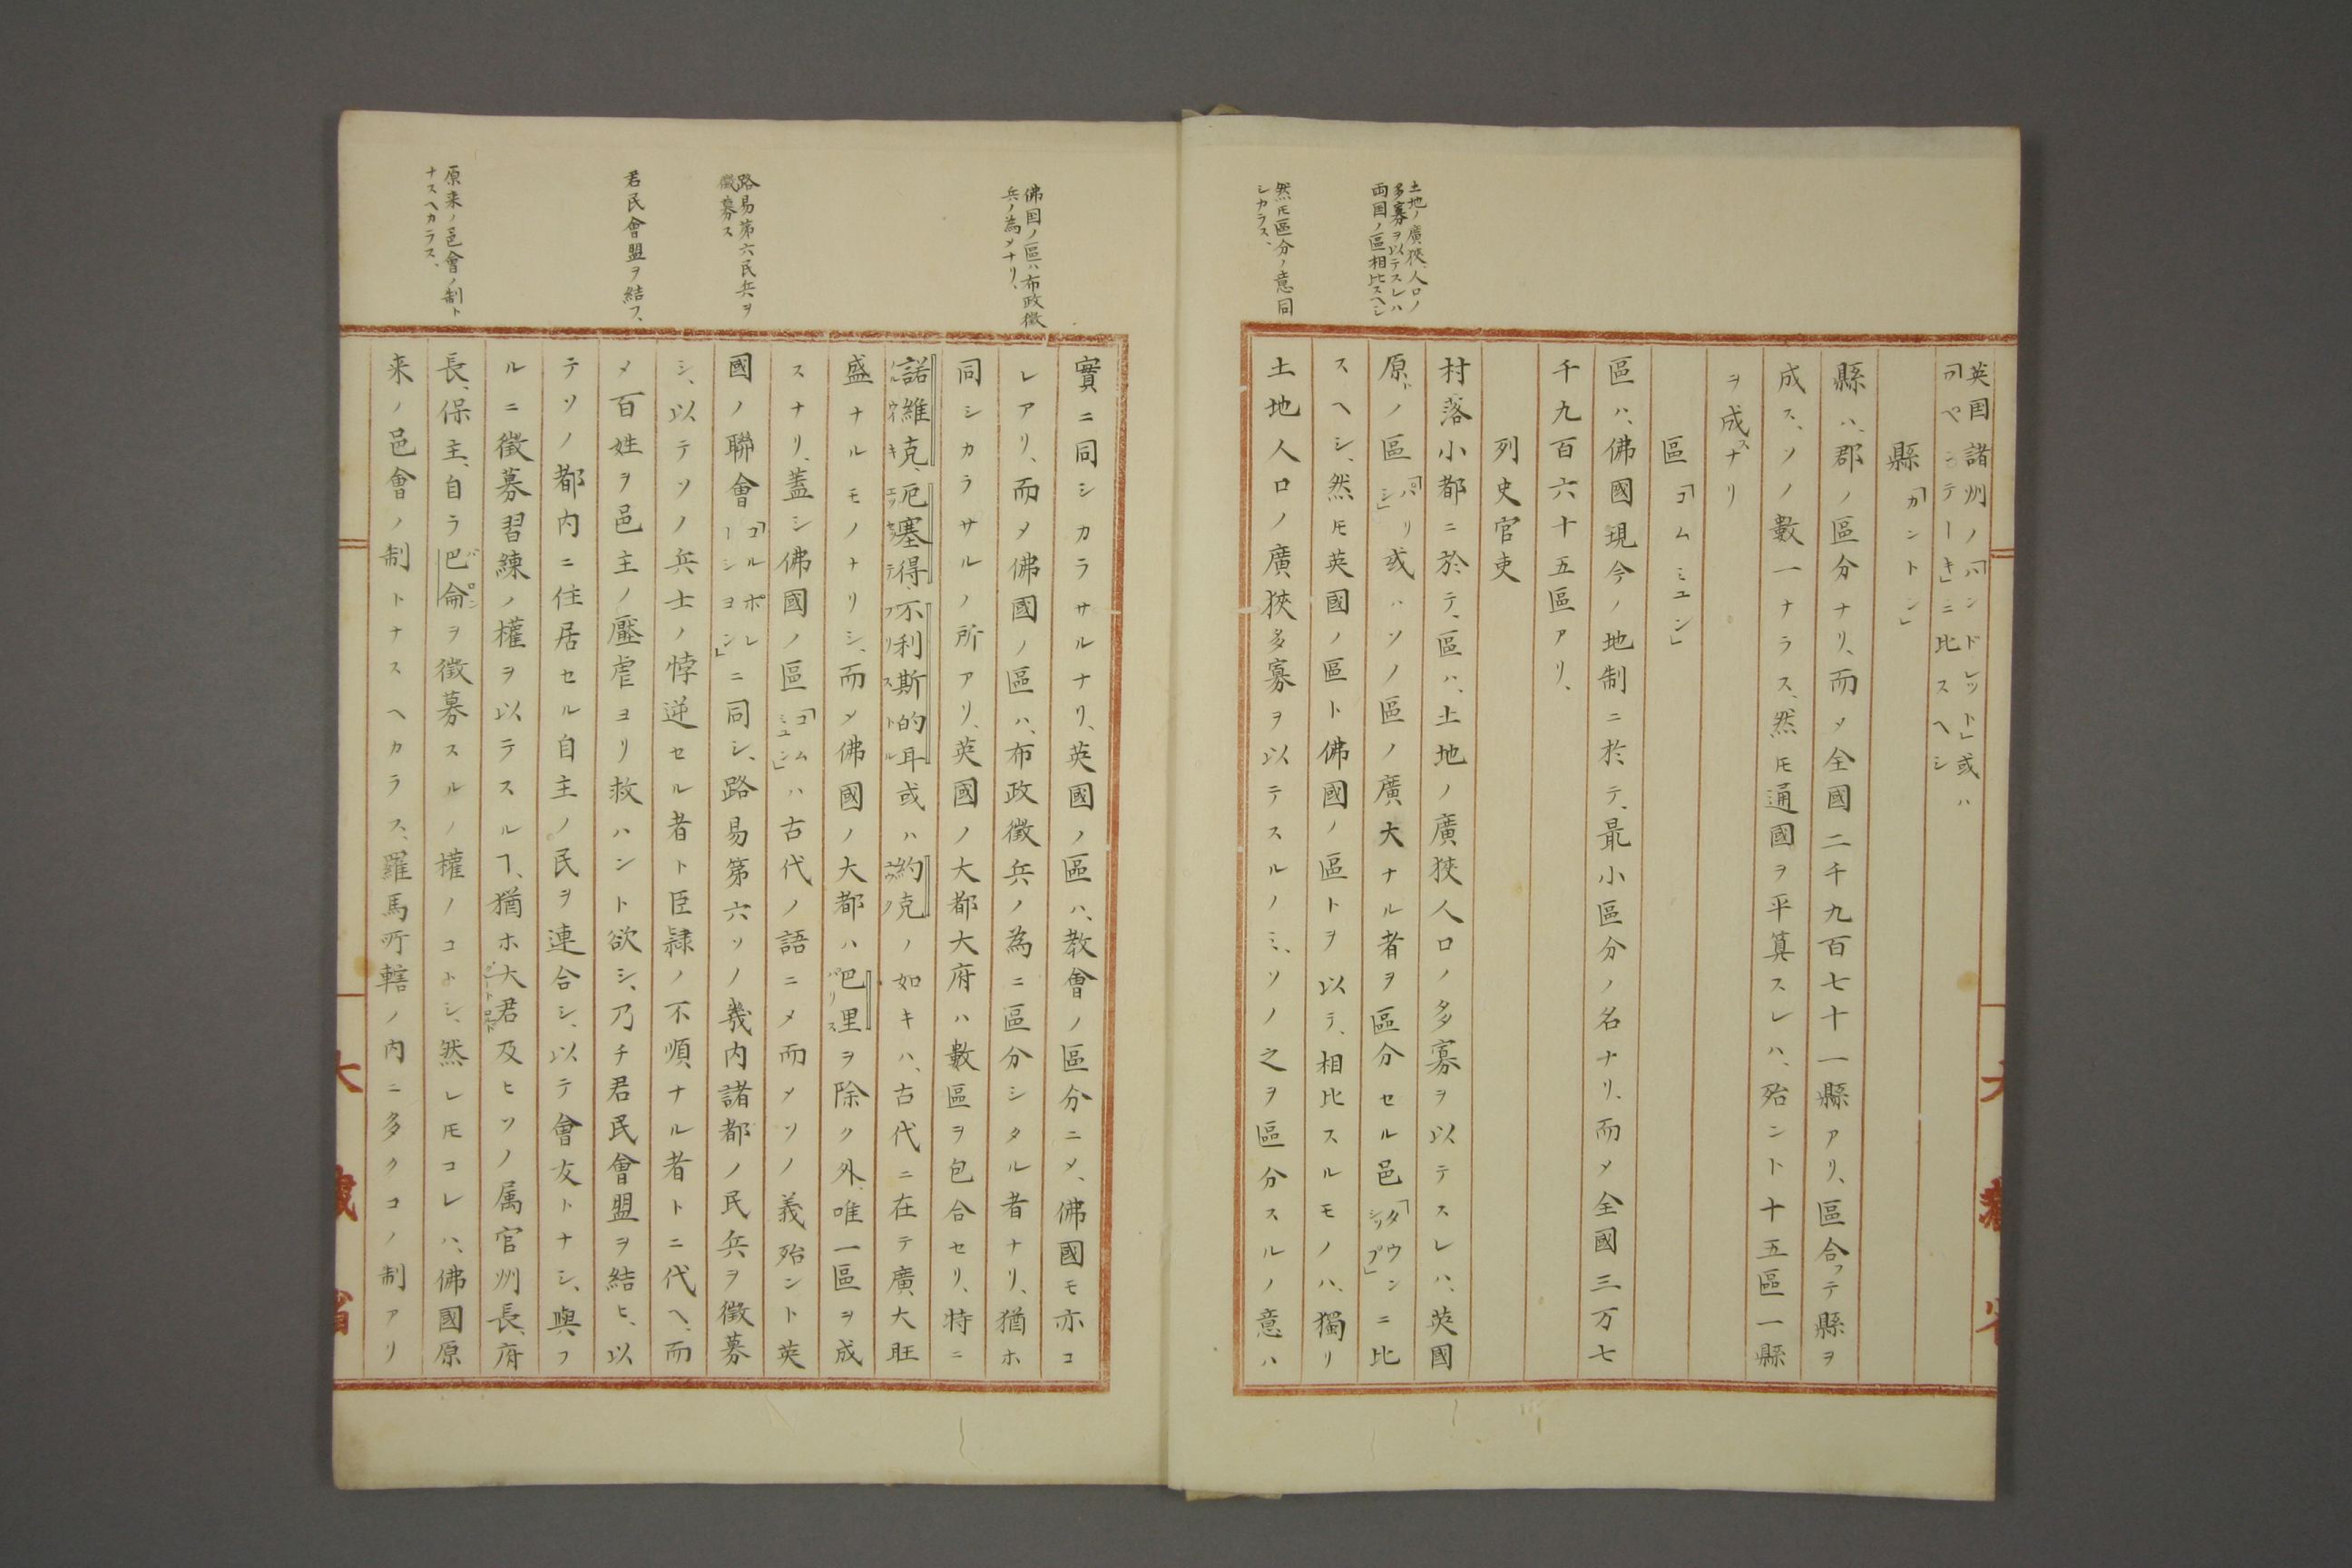 英国諸州ノ「ハンドレット」或ハ
「ワペンテーキ」ニ比スヘシ
縣「カントン」
縣ハ、郡ノ區分ナリ、而〆全國二千九百七十一縣アリ、區合フテ縣ヲ
成ス、ソノ數一ナラス、然𪜈通國ヲ平算スレハ、殆ント十五區一縣
ヲ成スナリ
區「コムミユン」
區ハ、佛國現今ノ地制ニ於テ、最小區分ノ名ナリ、而〆全國三万七
千九百六十五區アリ、
列史官吏
土地ノ廣狹、人口ノ
多寡ヲ以テスレハ
両国ノ區相比スヘシ
村落小都ニ於テ、區ハ、土地ノ廣狹人口ノ多寡ヲ以テスレハ、英國
原トノ區「パリシ」或ハソノ區ノ廣大ナル者ヲ區分セル邑「タウンシツプ」ニ比
スヘシ、然𪜈英國ノ區ト佛國ノ區トヲ以テ、相比スルモノハ、獨リ
然𪜈區分ノ意同
シカラス、
土地人口ノ廣狹多寡ヲ以テスルノミ、ソノ之ヲ區分スルノ意ハ
實ニ同シカラサルナリ、英國ノ區ハ、教會ノ區分ニ〆、佛國モ亦コ
佛国ノ區ハ布政徴
兵ノ為メナリ、
レアリ、而〆佛國ノ區ハ、布政徴兵ノ為ニ區分シタル者ナリ、猶ホ
同シカラサルノ所アリ、英國ノ大都大府ハ數區ヲ包合セリ、特ニ
諾維克、厄塞得、不利斯的耳或ハ約克ノ如キハ、古代ニ在テ廣大旺
盛ナルモノナリシ、而〆佛國ノ大都ハ巴里パリスヲ除ク外、唯一區ヲ成
スナリ、蓋シ佛國ノ區「コムミユン」ハ古代ノ語ニ〆而〆ソノ義殆ント英
路易第六民兵ヲ
徴募ス
國ノ聯會「コルポレーシヨン」ニ同シ、路易第六ソノ畿内諸都ノ民兵ヲ徴募
シ、以テソノ兵士ノ悖逆セル者ト臣隷ノ不順ナル者トニ代ヘ、而
君民會盟ヲ結フ、
〆百姓ヲ邑主ノ壓虐ヨリ救ハント欲シ、乃チ君民會盟ヲ結ヒ、以
テソノ都内ニ住居セル自主ノ民ヲ連合シ、以テ會友トナシ、與フ
ルニ徴募習練ノ權ヲ以テスルヿ、猶ホ大君及ヒソノ属官州長、府
原来ノ邑會ノ制ト
ナスヘカラス、
長、保主、自ラ巴侖バロンヲ徴募スルノ權ノコトシ、然レ𪜈コレハ、佛國原
来ノ邑會ノ制トナスヘカラス、羅馬所轄ノ内ニ多クコノ制アリ
大藏省